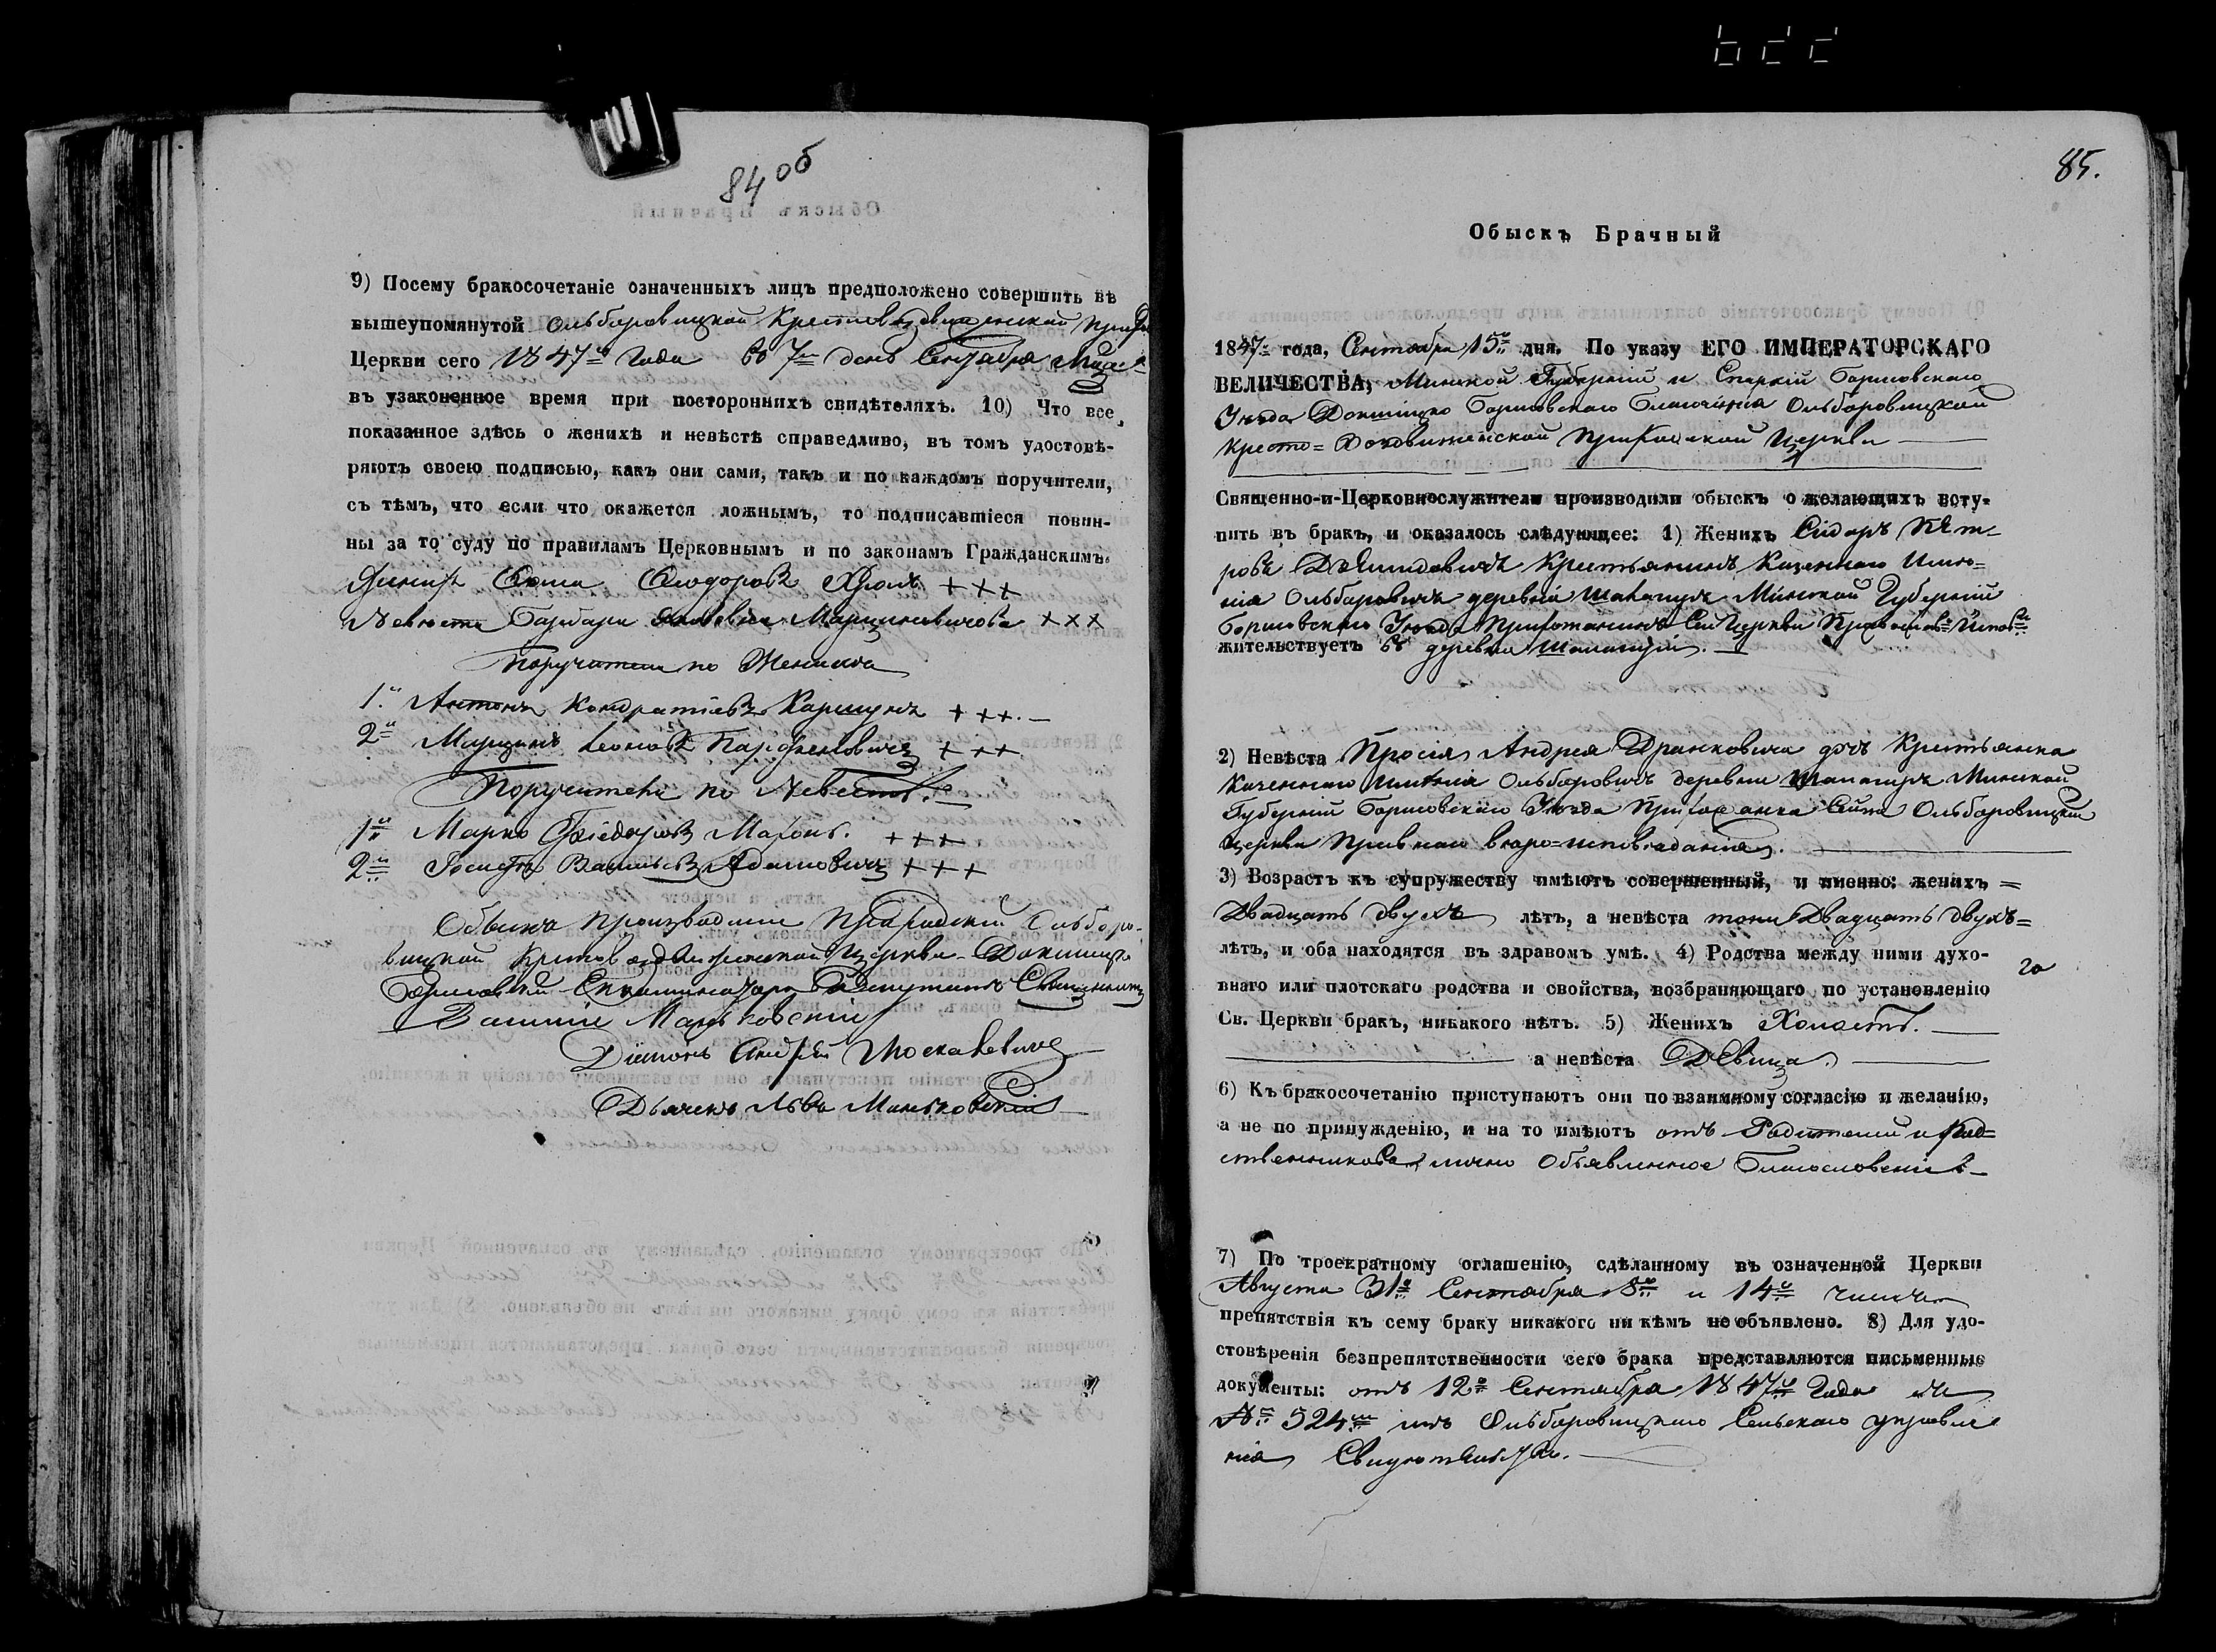 84 об
9) Посему бракосочетаніе означенныхъ лицъ предположено совершить въ
вышеупомянутой Ольборовицкой Крестовоздвиженской
Церкви сего 1847го Года во 7й день Сентября
въ узаконенное время при постороннихъ свидѣтеляхъ. 10) Что все
показанное здѣсь о женихѣ и невѣстѣ справедливо, въ томъ удостовѣ-
ряютъ своею подписью, какъ они сами, такъ и по каждомъ поручители,
съ тѣмъ, что если что окажется ложнымъ, то подписавшіеся повин-
ны за то суду по правиламъ Церковнымъ и по законамъ Гражданскимъ.
Женихъ Ѳома Ѳеодоровъ +++
Невѣста Барбара Марциновичова ×××
Поручители по Женихѣ
1й Антонъ Кондратіевъ +++.—
2й Марцинъ Леоновъ Парфеновичъ +++
Поручители по Невѣстѣ.
1й Марко +++
2й Іосифъ Васильевъ Адамовичъ +++
Обыскъ производили Ольборо-
вицкой Крестовоздвиженской Церкви Докшицко
Борисовскій Депутатъ Священникъ
Василій
Діаконъ Андрей Москалевичъ
Дьячекъ Левъ Маньковскій
85.
Обыскъ Брачный
1847го года, Сентября 15го дня. По указу ЕГО ИМПЕРАТОРСКАГО
ВЕЛИЧЕСТВА, Минской Губерніи и Епархіи Борисовскаго
Уѣзда Докшицко Борисовскаго Благочинія Ольборовицкой
Кресто=Воздвиженской Приходской Церкви
Священно-и-Церковнослужители производили обыскъ о желающихъ всту-
пить въ бракъ, и оказалось слѣдующее: 1) Женихъ Сидоръ Пет-
ровъ Крестьянинъ Казеннаго Имѣ=
нія Ольборовичъ деревни Минской Губерніи
Борисовскаго Уѣзда Прихожанинъ Сей Церкви
жительствуетъ въ деревни
2) Невѣста Просія Андрея Дранковича дочь Крестьянка
Казеннаго Имѣнія Ольборовичъ деревни Минской
Губерніи Борисовскаго Уѣзда Прихожанка Ольборовицкой
Церкви вѣро=исповѣданія.
3) Возрастъ къ супружеству имѣютъ совершенный, и именно: женихъ =
Двадцать двухъ лѣтъ, а невѣста тоже Двадцать двухъ=
лѣтъ, и оба находятся въ здравомъ умѣ. 4) Родства между ними духо-
го
внаго или плотскаго родства и свойства, возбраняющаго по установленію
Св. Церкви бракъ, никакого нѣтъ. 5) Женихъ Холостъ.
а невѣста Дѣвица.
6) Къ бракосочетанію приступаютъ они по взаимному согласію и желанію,
а не по принужденію, и на то имѣютъ отъ Родителей и Род=
ственниковъ лично Объявленное Благословеніе
7) По троекратному оглашенію, сдѣланному въ означенной Церкви
Августа 31го Сентября 8го и 14го числъ
препятствія къ сему браку никакого ни кѣмъ не объявлено. 8) Для удо-
стовѣренія безпрепятственности сего брака представляются письменные
документы: отъ 12го Сентября 1847го Года за
№ 524м изъ Ольборовицкаго Сельскаго управле
нія Свидѣтельство.